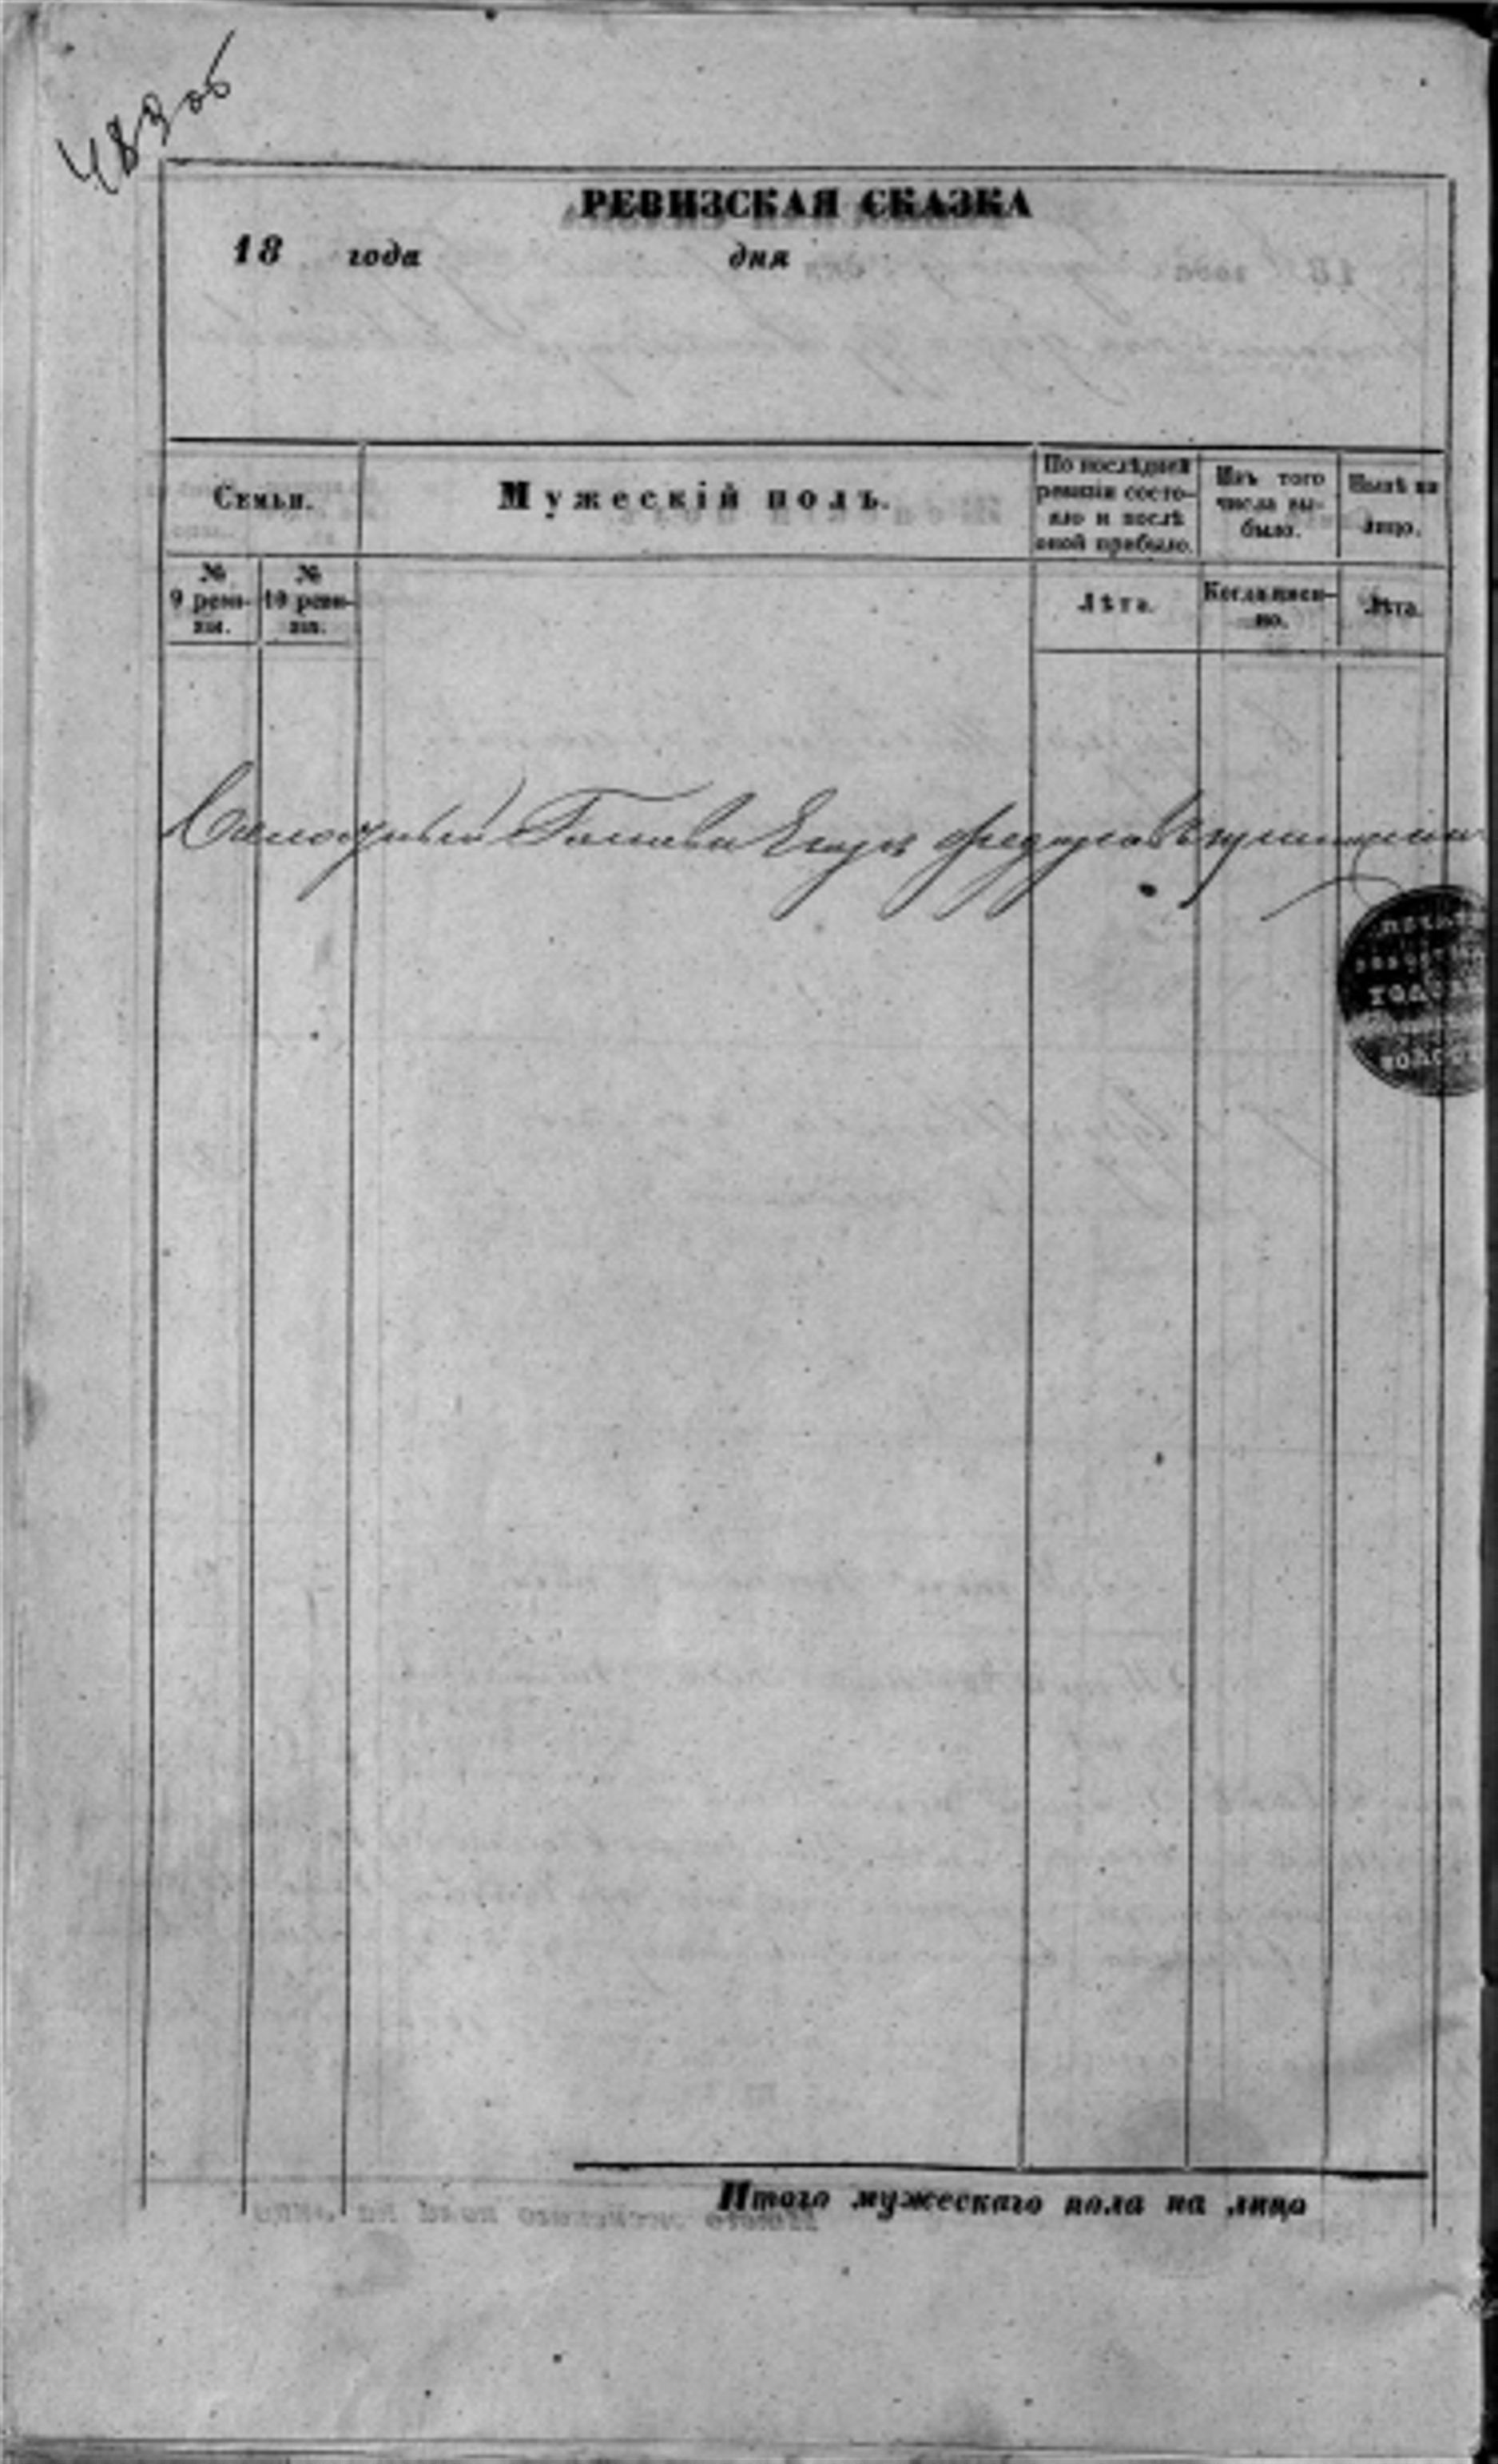 483об
РЕВИЗСКАЯ СКАЗКА
18 года дня
Семьи.
Мужескій полъ.
По послѣдней ревизіи состо-
яло и послѣ
оной прибыло.
Изъ того
числа вы-
было.
Нынѣ на
лицо.
№
9 реви-
зіи.
№
10 реви-
зіи.
Лѣта.
Когда имен-
но.
Лѣта.
Голова
ПЕЧАТ
ВОЛОС
Итого мужескаго пола на лицо